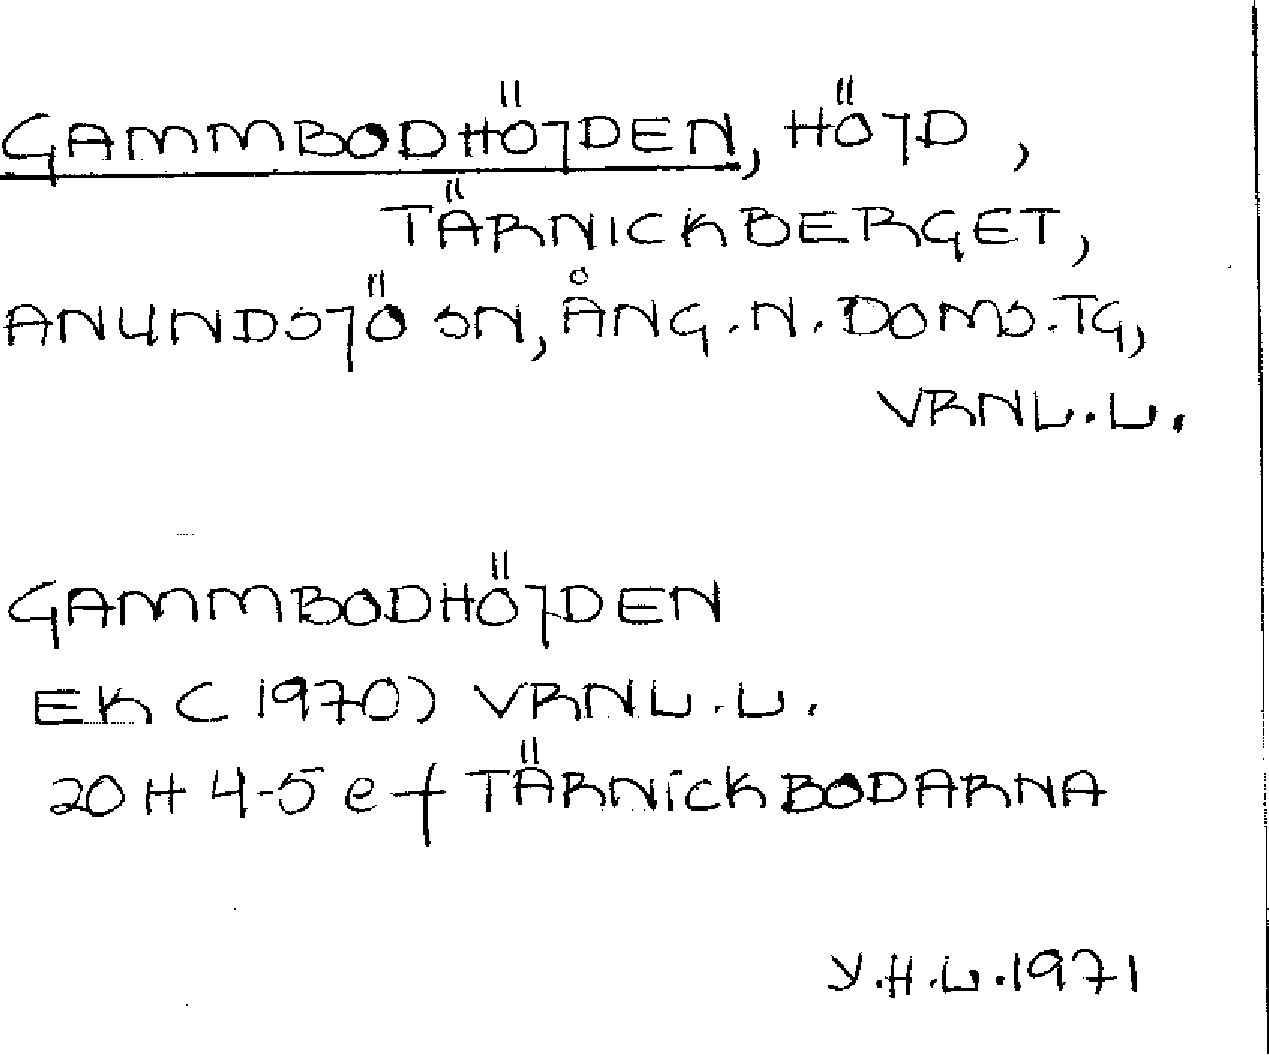 GAMMBODHÖJDEN, HÖJD,
TÄRNICKBERGET,
ANUNDSJÖ SN, ÅNG. N. DOMS. TG,
VRNL. L.
GAMMBODHÖJDEN
EK (1970) VRNL. L.
20H 4-5 e-f TÄRNICKBODARNA
Y.H.L. 1971